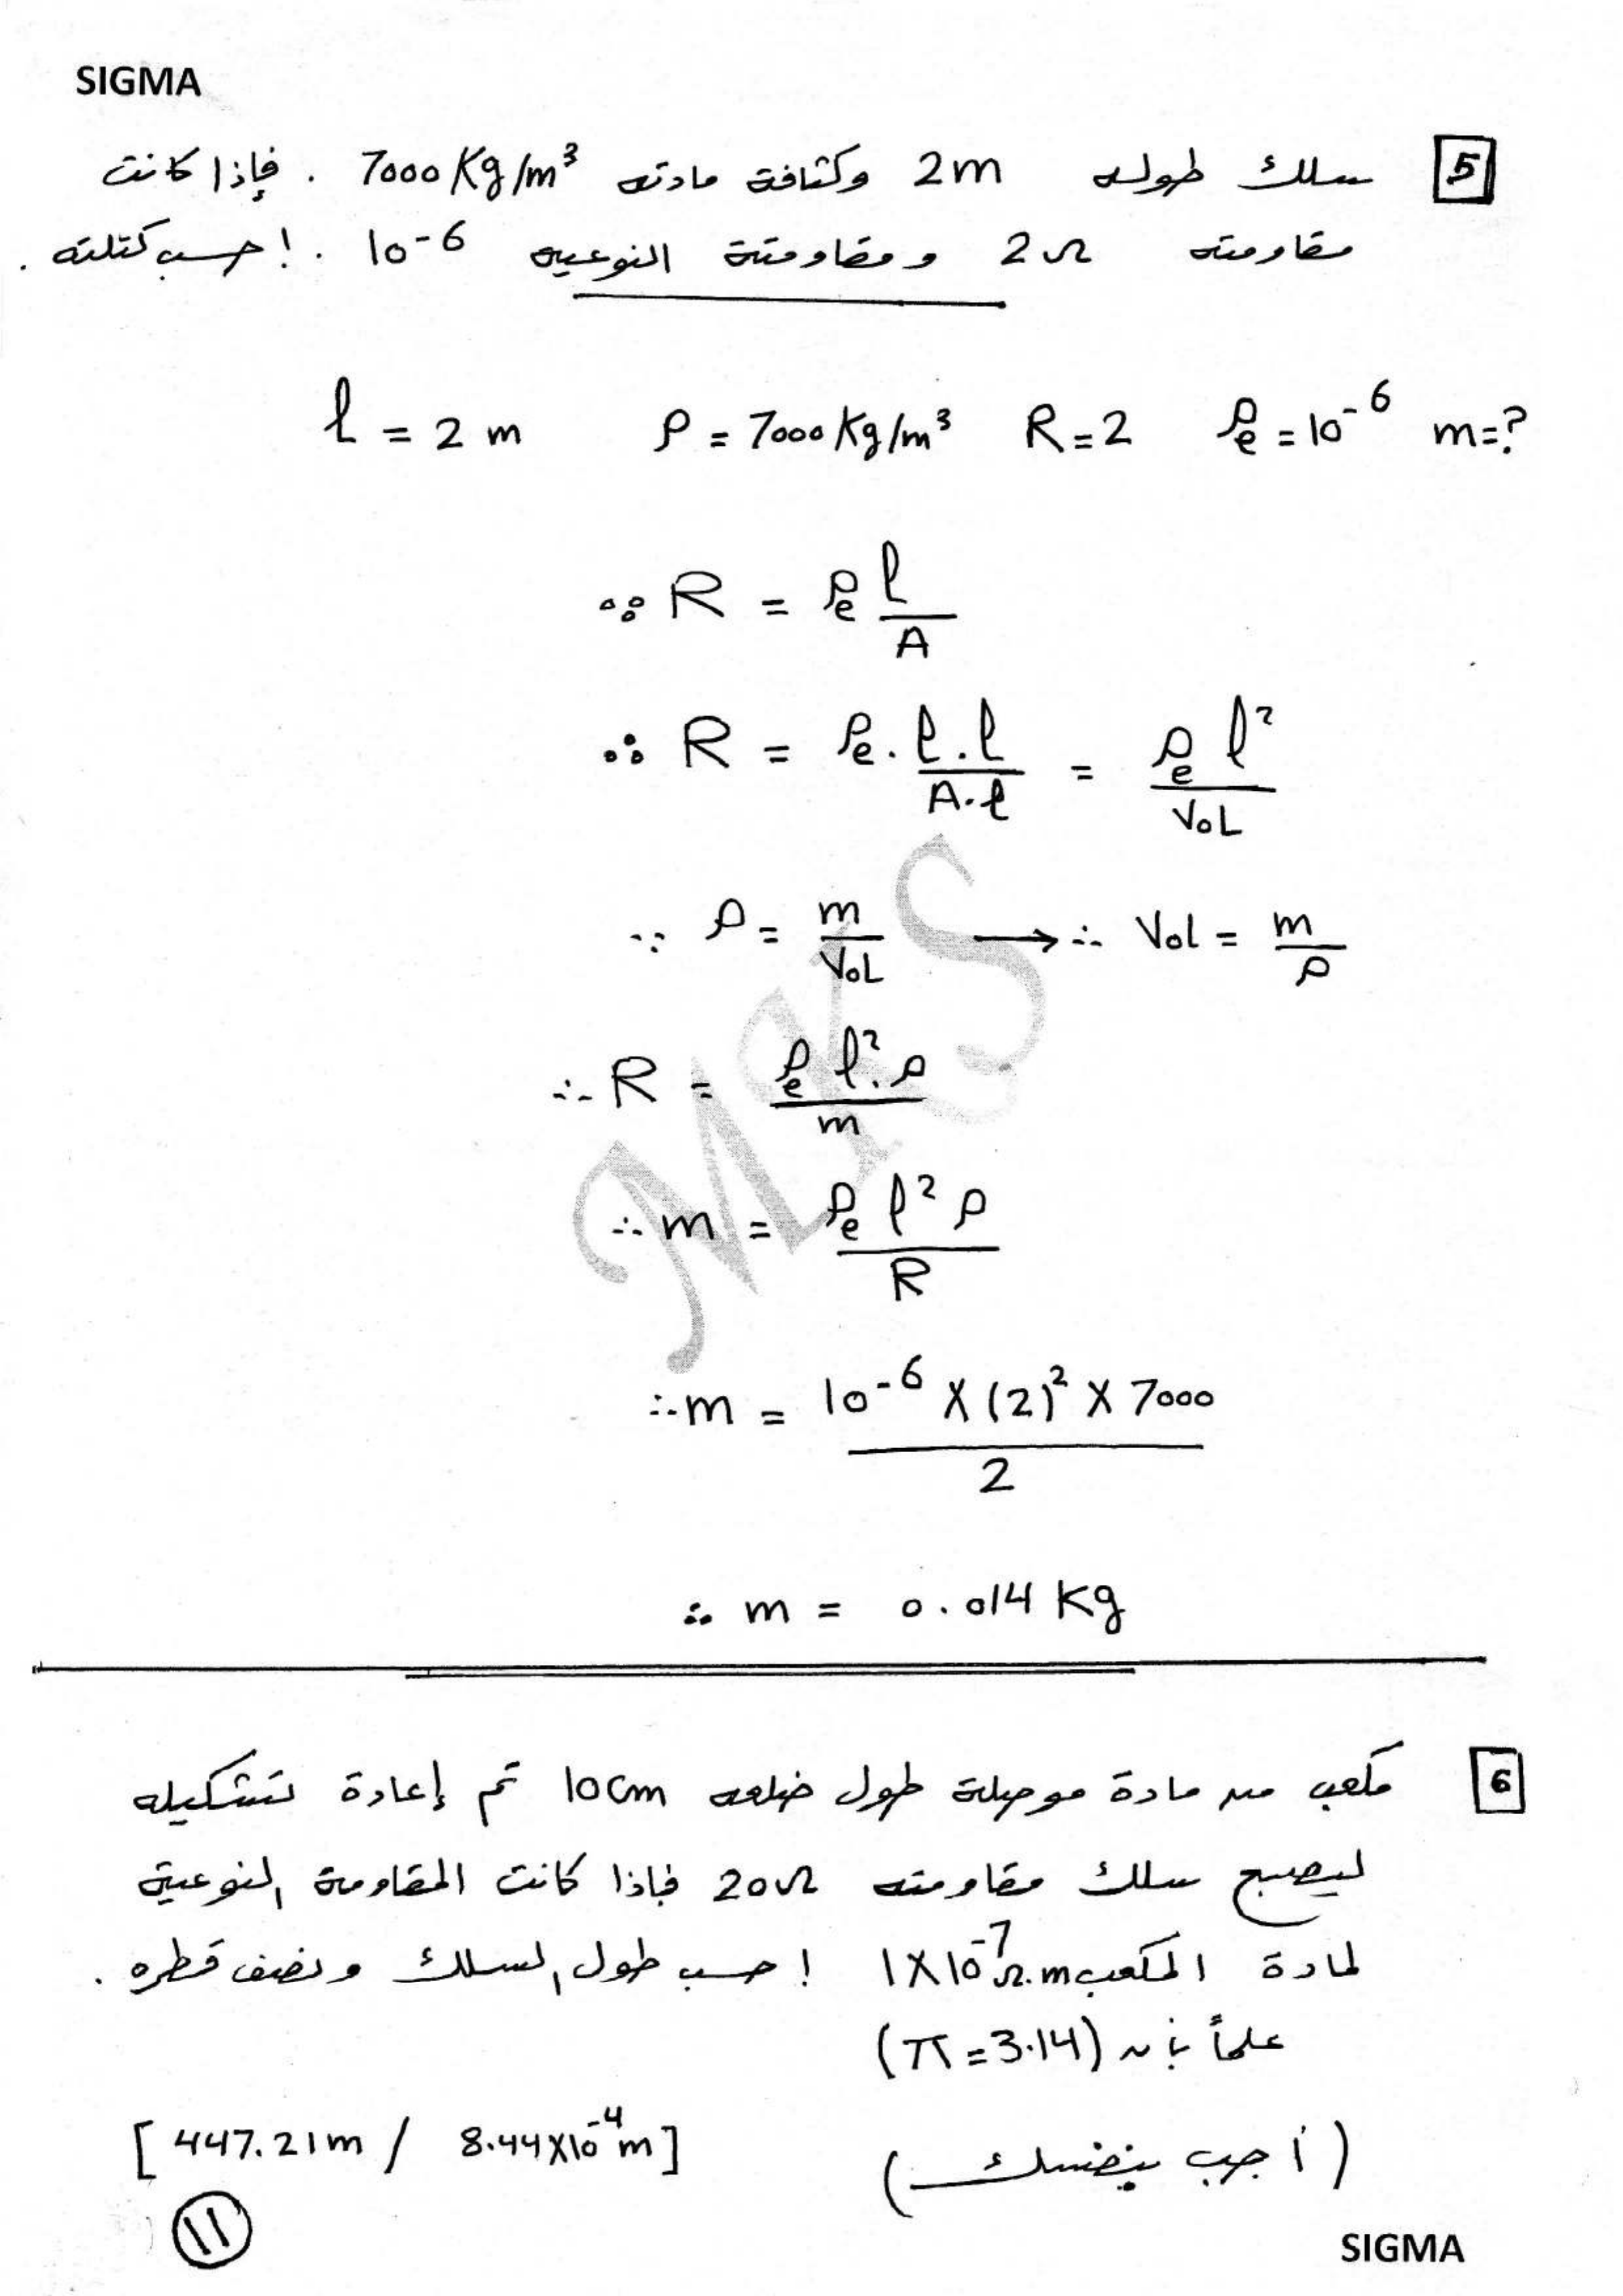 SIGMA
5 سلك طوله 2m وكثافة مادته 7000 Kg/m³ . فإذا كانت
مقاومته 2Ω ومقاومتة النوعيه 10⁻⁶ . احسب كتلته .
l = 2 m ρ = 7000 Kg/m³ R = 2 ρe = 10⁻⁶ m = ?
∵ R = ρe l / A
∴ R = ρe . l . l / A . l = ρe l² / VoL
∵ ρ = m / VoL → ∴ Vol = m / ρ
∴ R = ρe l² . ρ / m
∴ m = ρe l² ρ / R
∴ m = 10⁻⁶ X (2)² X 7000 / 2
∴ m = 0.014 Kg
MKS
6 مكعب من مادة موصلة طول ضلعه 10cm تم إعادة تشكيله
ليصبح سلك مقاومته 20Ω فإذا كانت المقاومة النوعية
لمادة المكعب 1X10⁻⁷ Ω.m احسب طول السلك ونصف قطره .
علماً بأن (π = 3.14)
(أجب بنفسك) [447.21m / 8.44X10⁻⁴m]
11
SIGMA